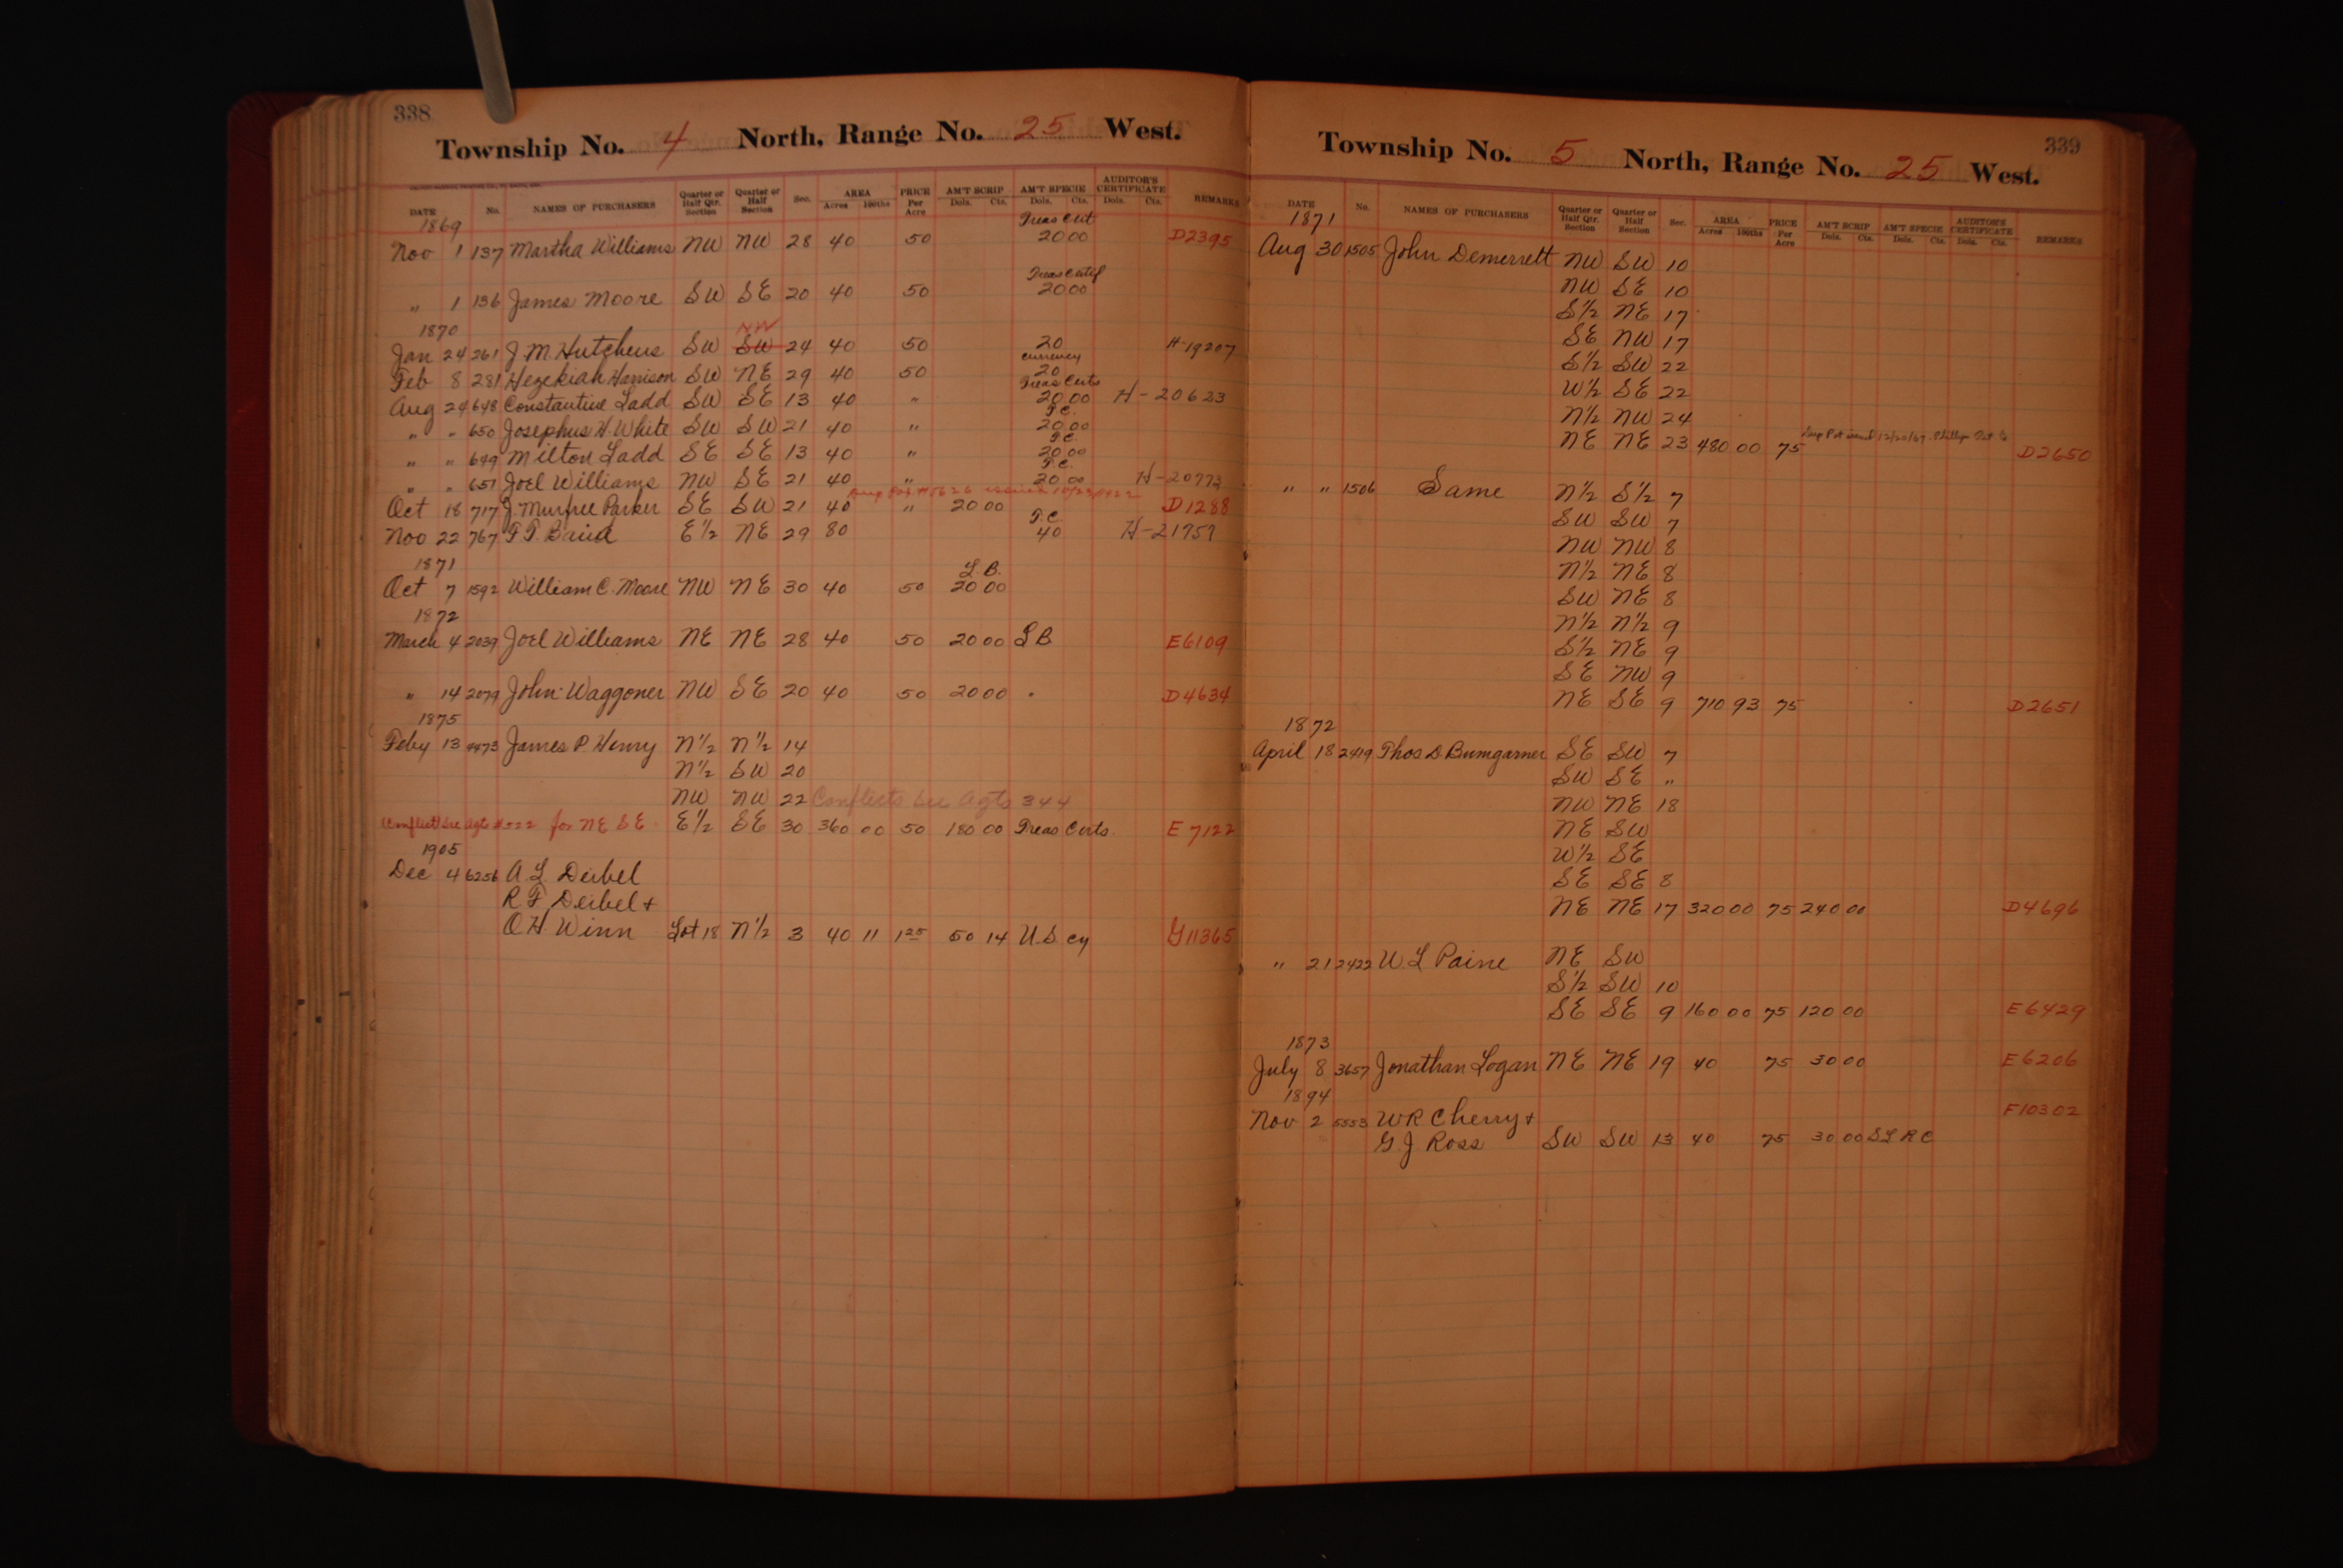 338
Township No. 4 North, Range No. 25 West.
DATE No. NAMES OF PURCHASERS Quarter or Half Qtr. Section Quarter or Half Section Sec. AREA Acres 100ths PRICE Per Acre AM'T SCRIP Dols. Cts. AM'T SPECIE Dols. Cts. AUDITOR'S CERTIFICATE Dols. Cts. REMARKS
1869 Treas Cert
Nov 1 137 Martha Williams NW NW 28 40 50 20 00 D2395
Treas Certf
" 1 136 James Moore SW SE 20 40 50 20 00
1870 NW
Jan 24 261 J. M. Hutchens SW SW 24 40 50 20 H-19207
currency
Feb 8 281 Hezekiah Harrison SW NE 29 40 50 20
Treas Certs
Aug 24 648 Constantine Ladd SW SE 13 40 " 20 00 H-20623
T.C.
" " 650 Josephus H. White SW SW 21 40 " 20 00
T.C.
" " 649 Milton Ladd SE SE 13 40 " 20 00
T.C.
" " 651 Joel Williams NW SE 21 40 " 20 00 H-20773
issued
Oct 18 717 J. Murfree Parker SE SW 21 40 " 20 00 D1288
T.C.
Nov 22 767 F. T. Baird E½ NE 29 80 40 H-21757
1871 L. B.
Oct 7 1592 William C. Moore NW NE 30 40 50 20 00
1872
March 4 2039 Joel Williams NE NE 28 40 50 20 00 L B E6109
" 14 2079 John Waggoner NW SE 20 40 50 20 00 " D4634
1875
Feby 13 4473 James P Henry N½ N½ 14
N½ SW 20
NW NW 22 Conflicts see Agts 344
Conflict see Agts #522 for NE SE E½ SE 30 360 00 50 180 00 Treas Certs. E 7122
1905
Dec 4 6256 A. L. Deibel
R. F. Deibel +
O. H. Winn Lot 18 N½ 3 40 11 1 25 50 14 U. S. cy G11365
339
Township No. 5 North, Range No. 25 West.
DATE No. NAMES OF PURCHASERS Quarter or Half Qtr. Section Quarter or Half Section Sec. AREA Acres 100ths PRICE Per Acre AM'T SCRIP Dols. Cts. AM'T SPECIE Dols. Cts. AUDITOR'S CERTIFICATE Dols. Cts. REMARKS
1871
Aug 30 1505 John Demerrett NW SW 10
NW SE 10
S½ NE 17
SE NW 17
S½ SW 22
W½ SE 22
N½ NW 24
NE NE 23 480 00 75 D2650
" " 1506 Same N½ S½ 7
SW SW 7
NW NW 8
N½ NE 8
SW NE 8
N½ N½ 9
S½ NE 9
SE NW 9
NE SE 9 710 93 75 D2651
1872
April 18 2419 Thos D. Bumgarner SE SW 7
SW SE "
NW NE 18
NE SW
W½ SE
SE SE 8
NE NE 17 320 00 75 240 00 D4696
" 21 2422 W. L Paine NE SW
S½ SW 10
SE SE 9 160 00 75 120 00 E6429
1873
July 8 3657 Jonathan Logan NE NE 19 40 75 30 00 E6206
1894
Nov 2 5553 W R Cherry + F10302
G. J. Ross SW SW 13 40 75 30 00 S L R C